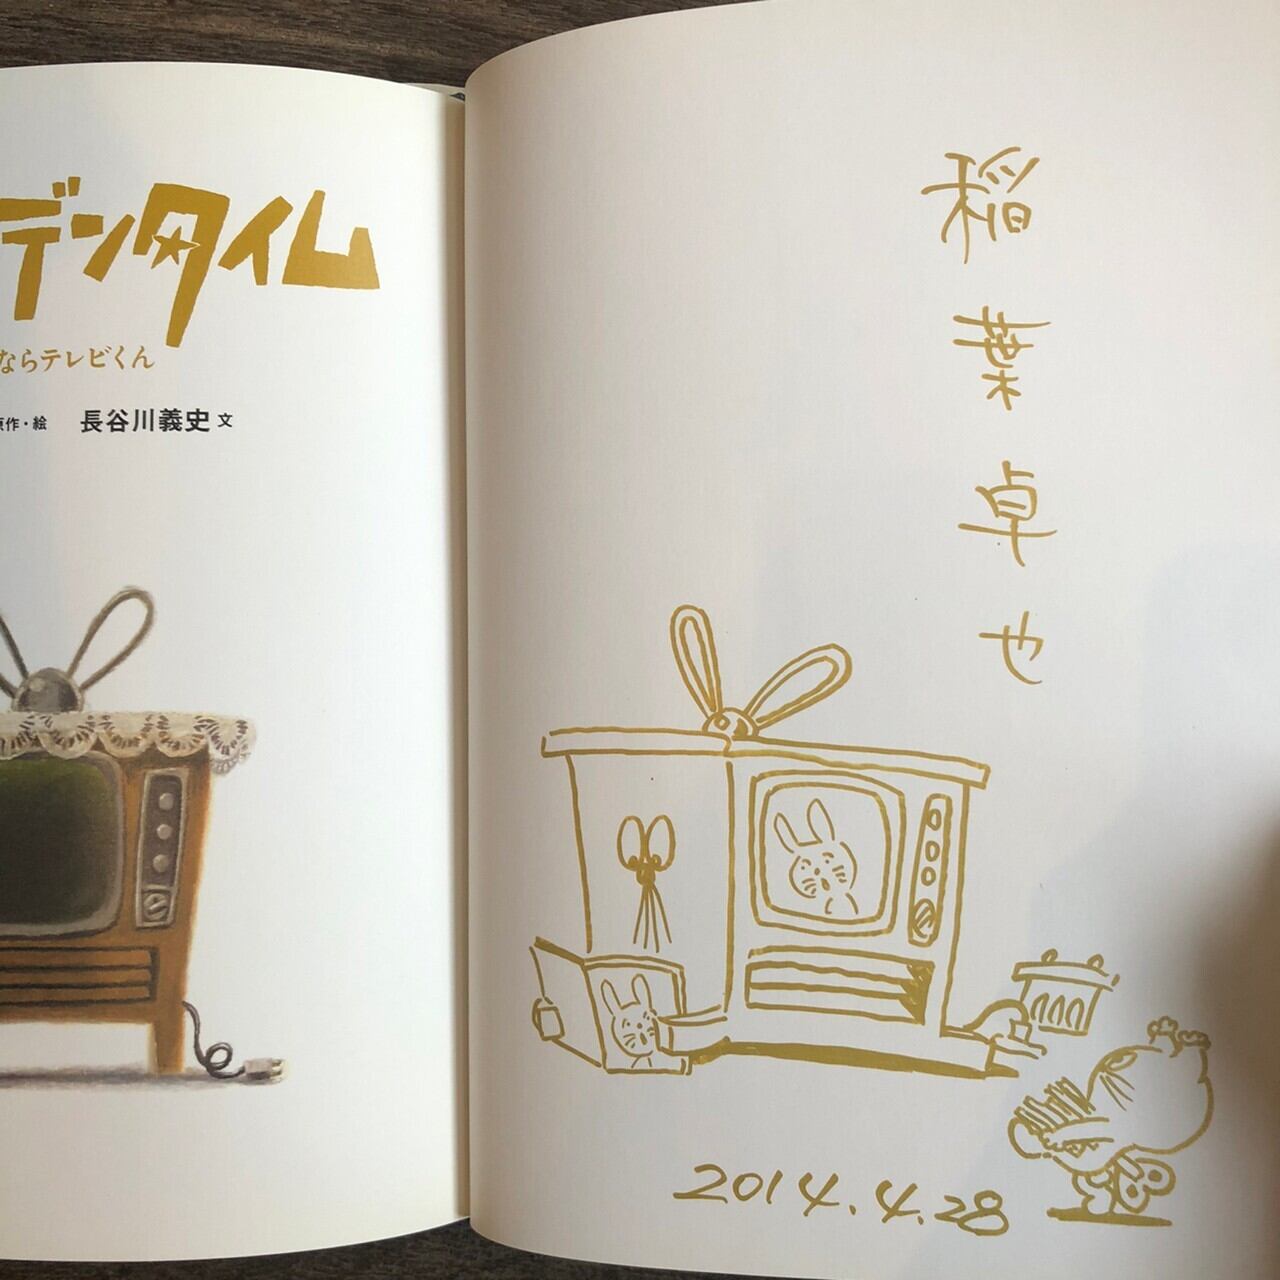 デンタイム
ならテレビくん
原作・絵 長谷川義史 文
稲葉卓也
2014.4.28